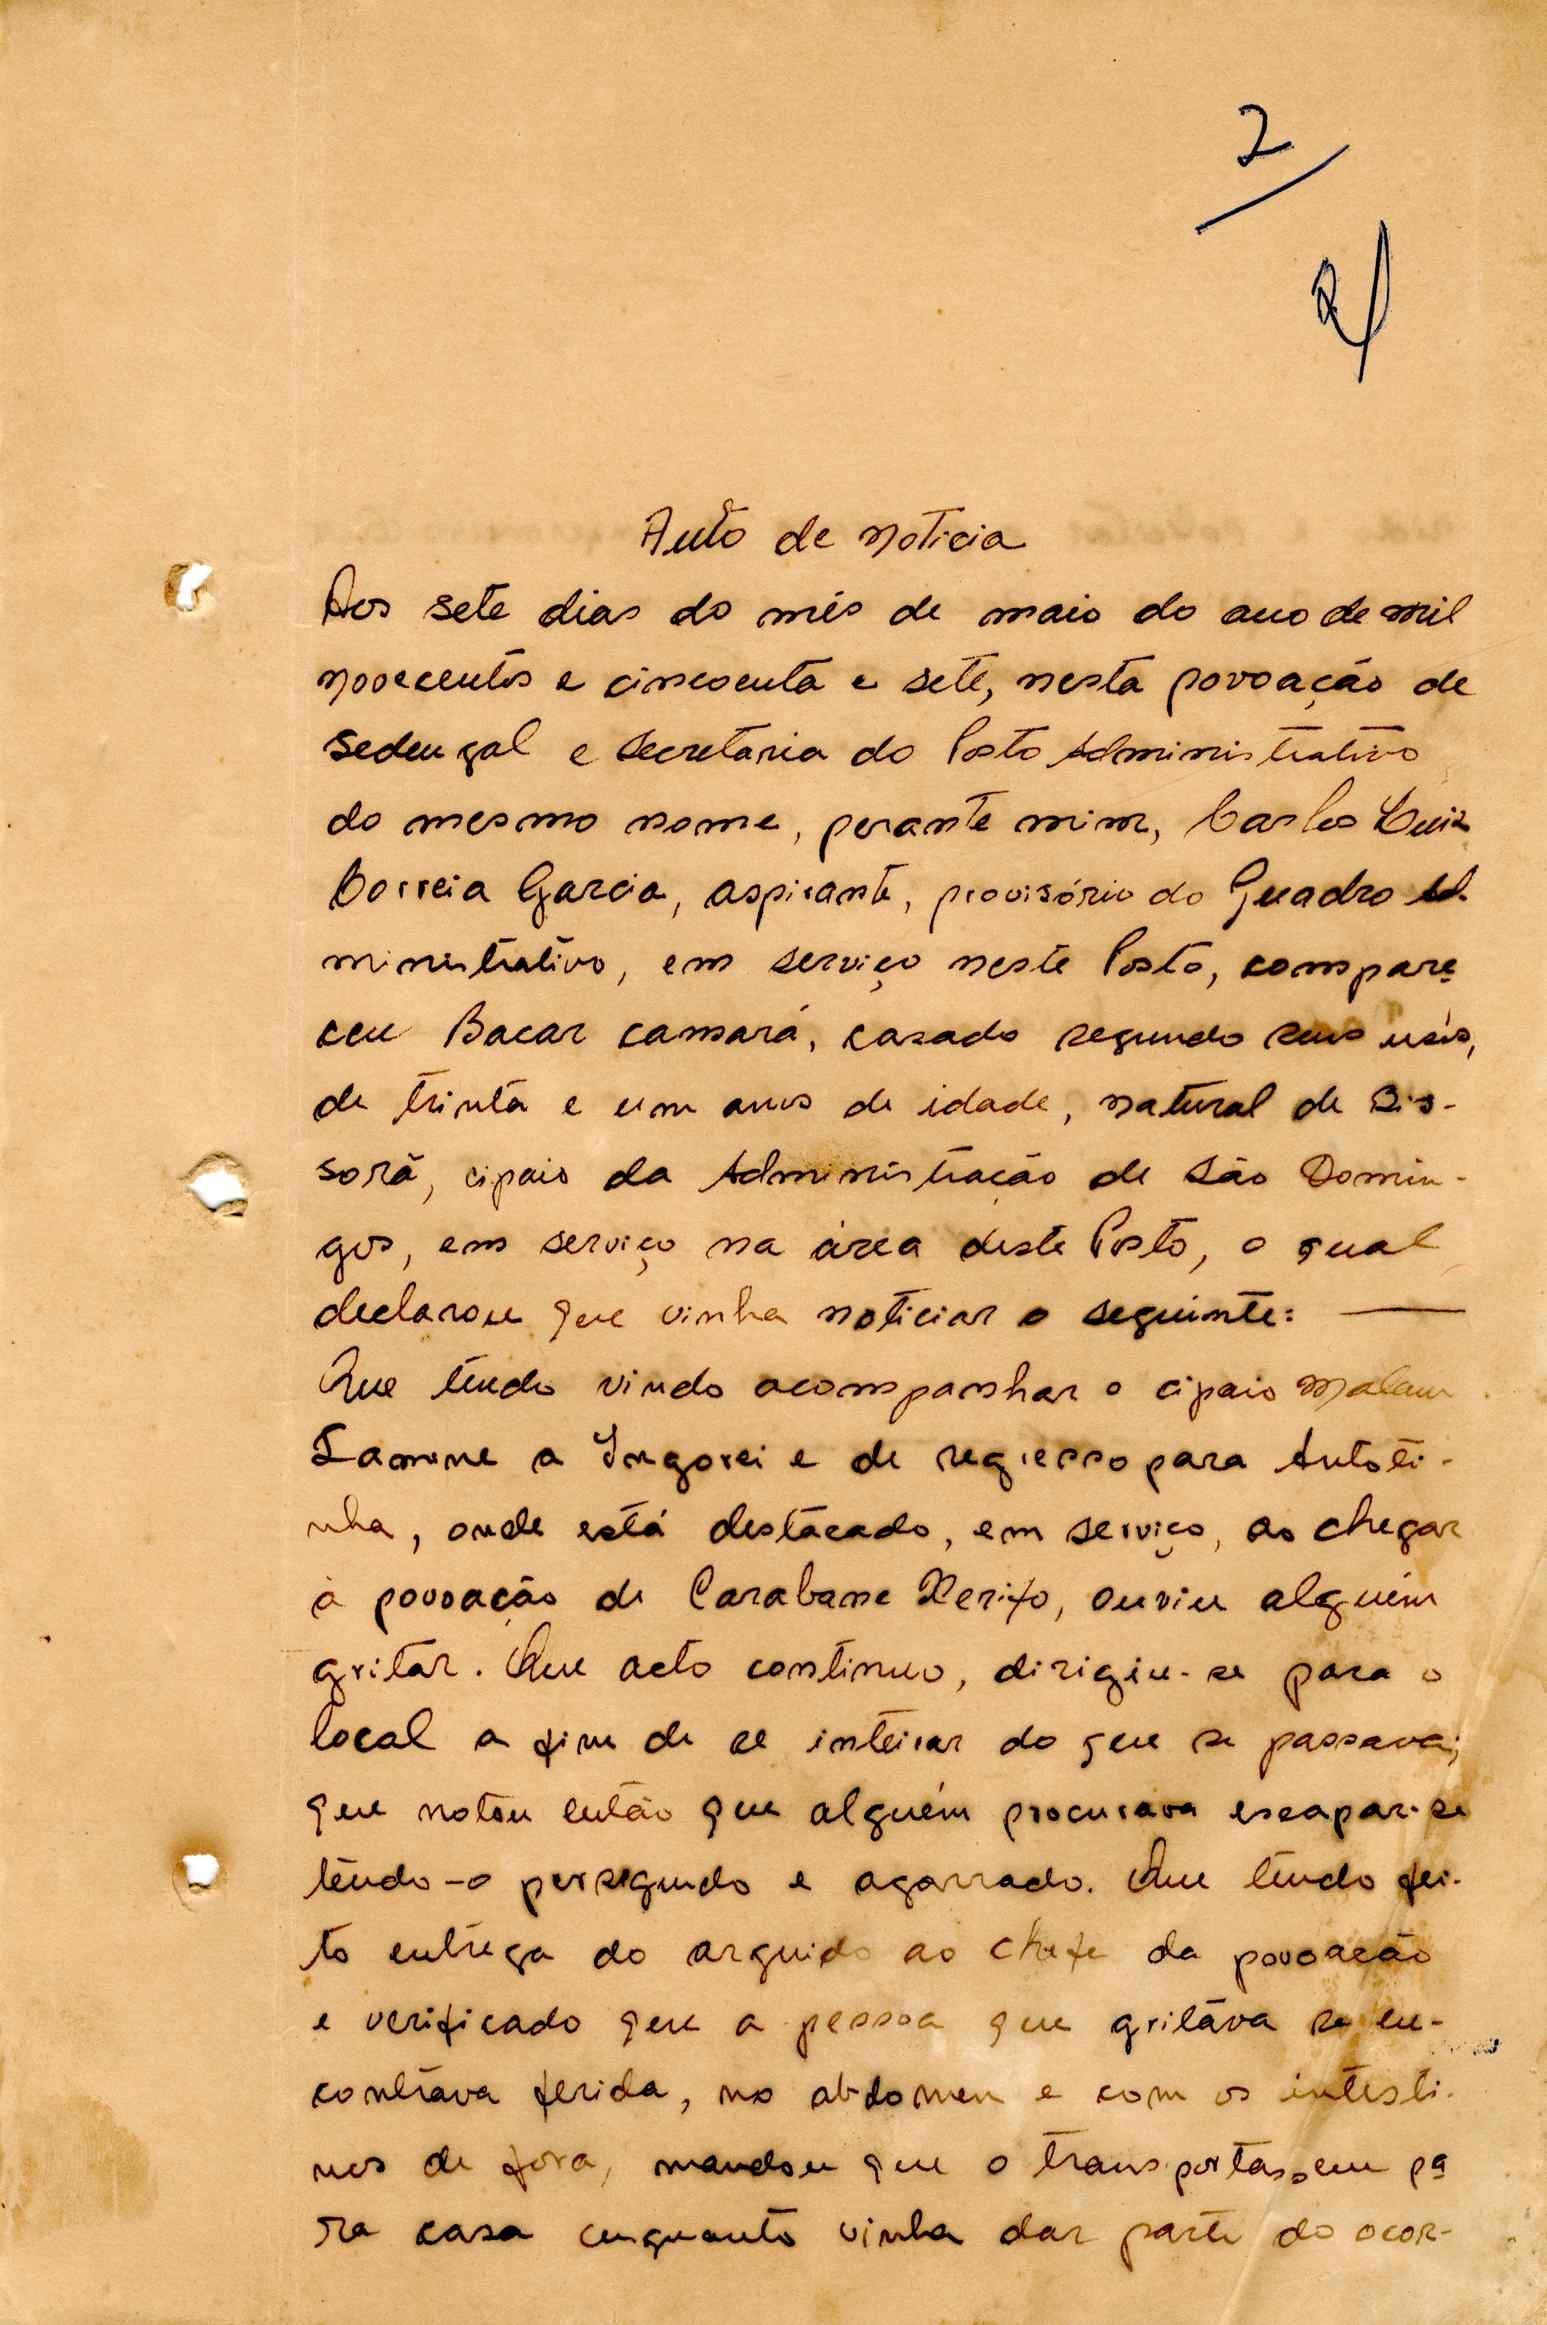 2
Auto de noticia
Aos sete dias do mês de maio do ano de mil
novecentos e cincoenta e sete, nesta povoação de
Sedengal e secretaria do Posto Administrativo
do mesmo nome, perante mim, Carlos Luiz
Correia Garcia, aspirante, provisório do Quadro Ad-
ministrativo, em serviço neste Posto, compare
ceu Bacar Camará, casado segundo seus usos,
de trinta e um anos de idade, natural de Bis-
sorã, cipaio da Administração de São Domin-
gos, em serviço na área deste Posto, o qual
declarou que vinha noticiar o seguinte: —
Que tendo vindo acompanhar o cipaio Malam
Lamine a Ingorei e de regresso para Antoti-
nha, onde está destacado, em serviço, ao chegar
à povoação de Carabane Xerifo, ouviu alguém
gritar. Que acto continuo, dirigiu-se para o
local a fim de se inteirar do que se passava;
que notou então que alguém procurava escapar-se
tendo-o perseguido e agarrado. Que tendo fei-
to entrega do arguido ao chefe da povoação
e verificado que a pessoa que gritava se en-
contrava ferida, no abdomen e com os intesti-
nos de fora, mandou que o transportassem pa
ra casa enquanto vinha dar parte do ocor-